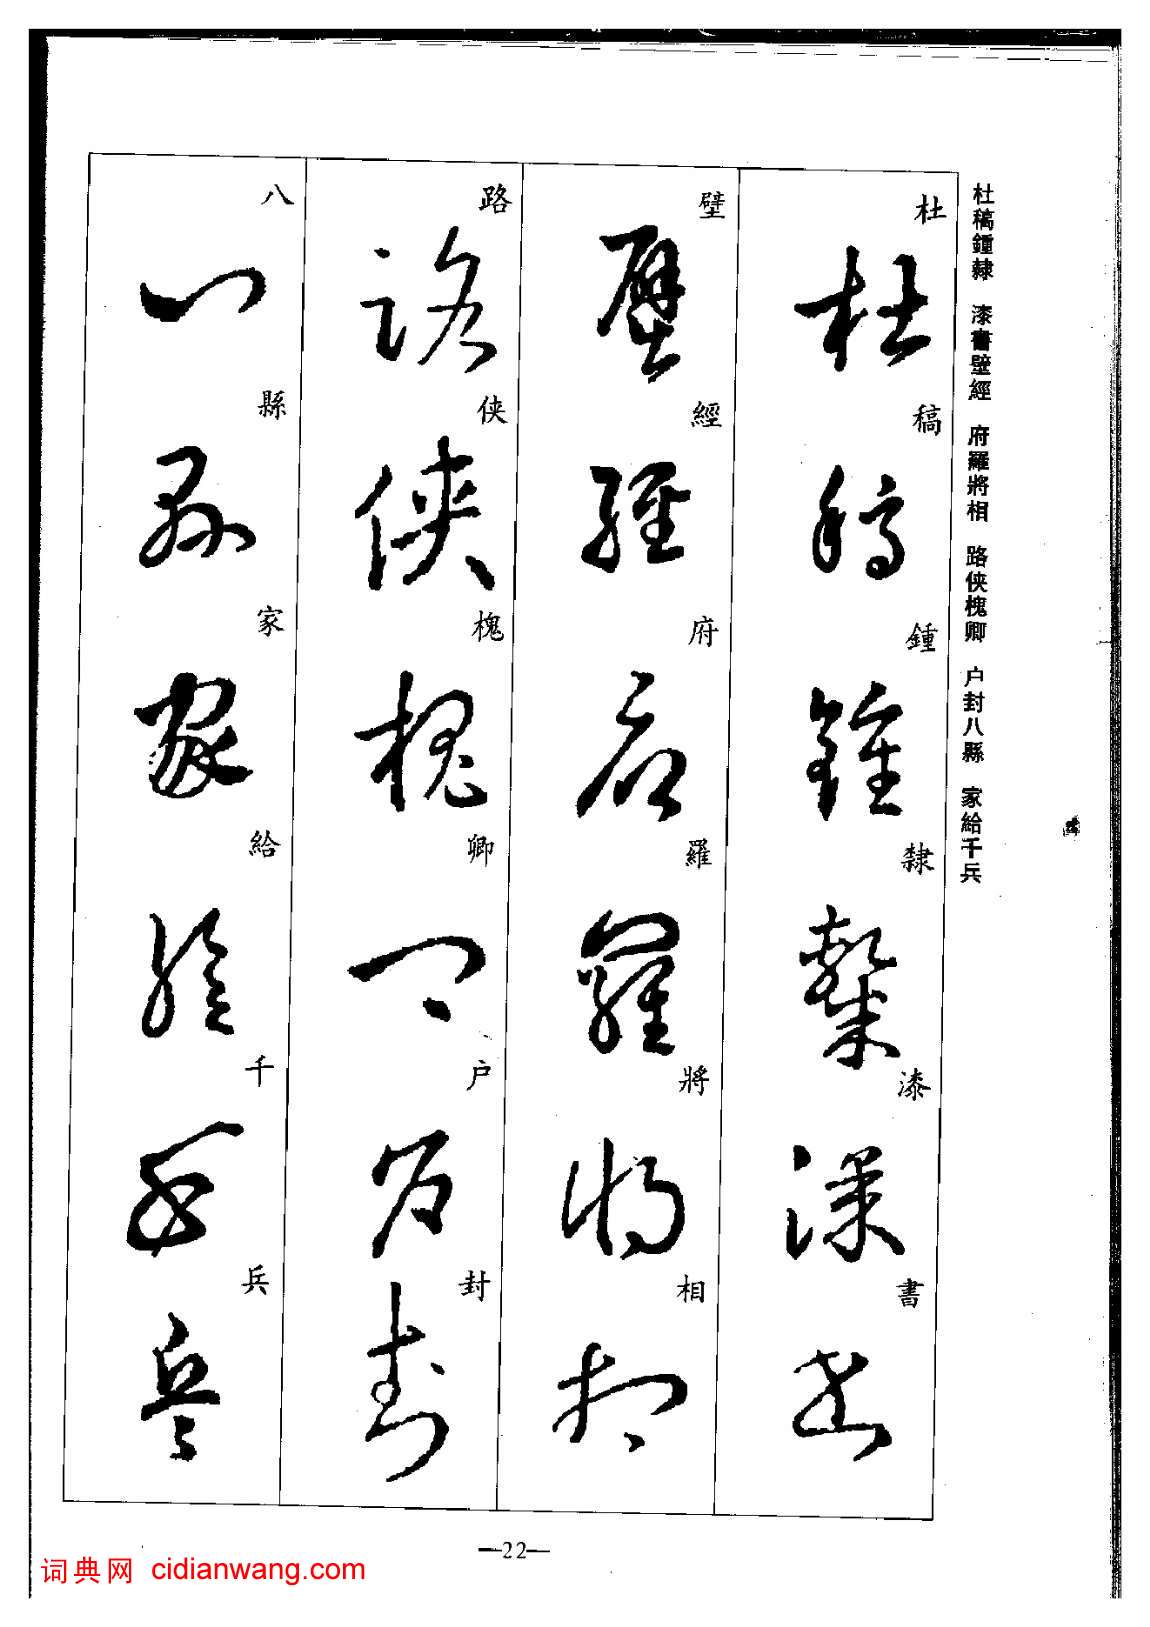 杜稿鍾隸 漆書壁經 府羅將相 路俠槐卿 户封八縣 家給千兵
杜稿鍾隸漆書
壁經府羅將相
路俠槐卿户封
八縣家給千兵
—22—
词典网 cidianwang.com